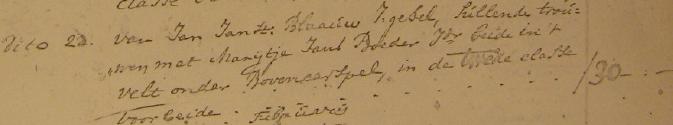 classe
dito 22. van Jan Jansz: Blaauw J. gesel, sullende trou-
wen met Marijtje Jans Boeder Jdr beide in't
velt onder Bovencarspel, in de twede classe
voor beide /30-:-